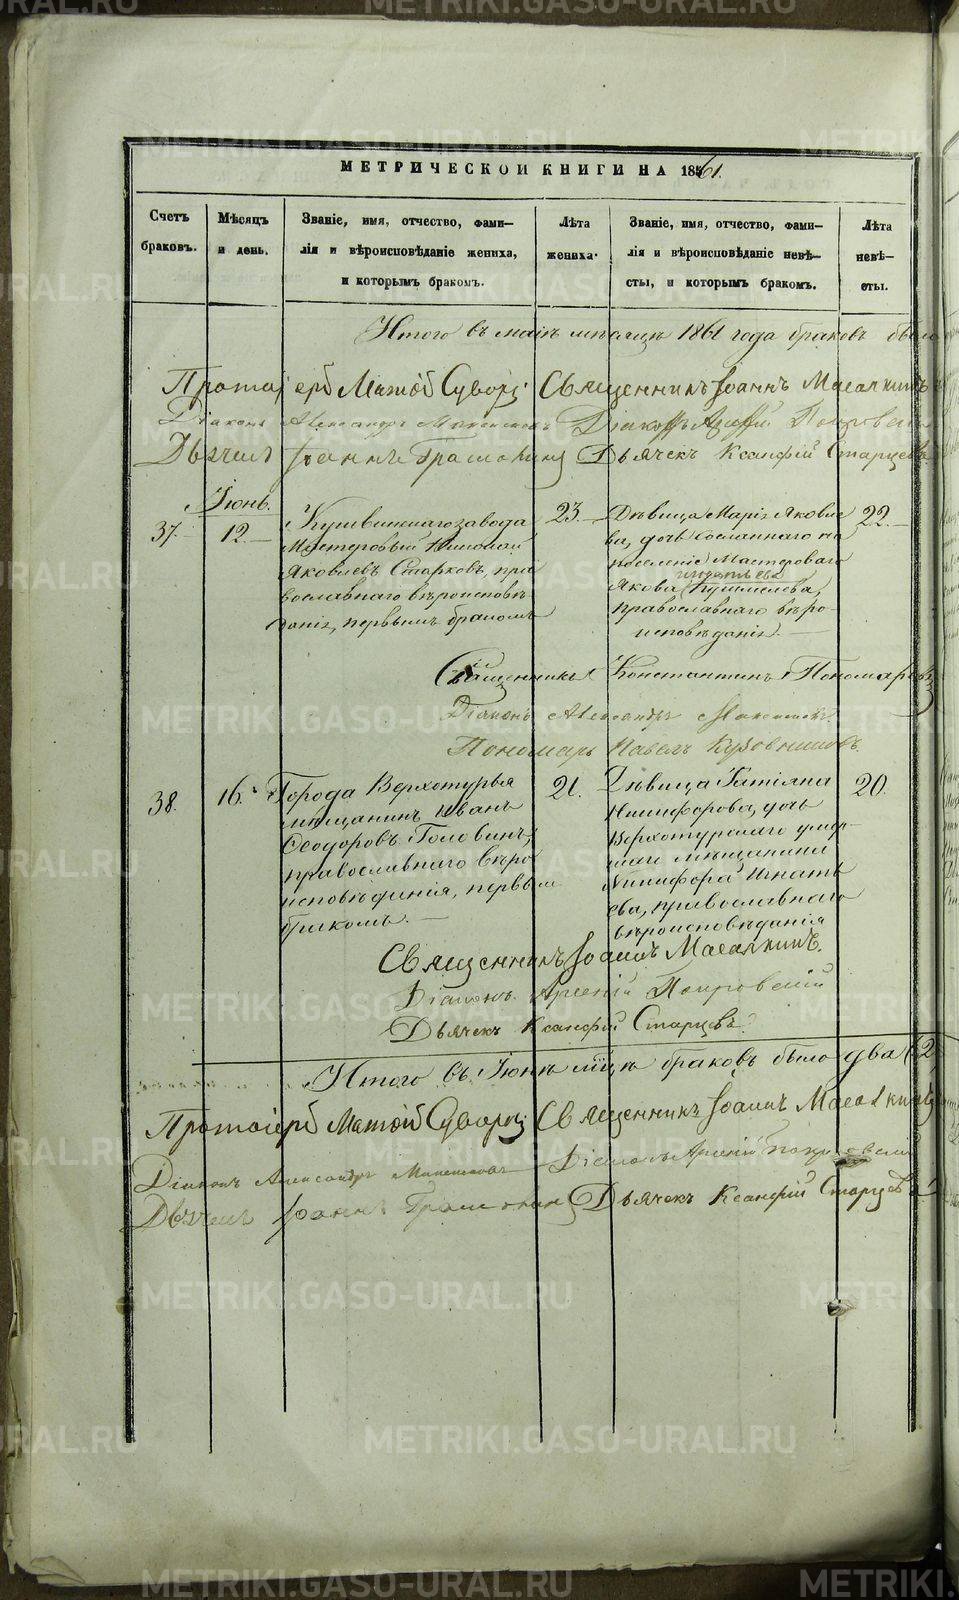 МЕТРИЧЕСКОЙ КНИГИ НА 1861.
Счетъ браковъ.
Мѣсяцъ и день.
Званіе, имя, отчество, фами-
лія и вѣроисповѣданіе жениха,
и которымъ бракомъ.
Лѣта жениха.
Званіе, имя, отчество, фами-
лія и вѣроисповѣданіе невѣ-
сты, и которымъ бракомъ.
Лѣта невѣ-
сты.
Итого въ маіѣ мѣсяцѣ 1861 года браковъ было
Протоіерей Матѳій Священникъ Іоаннъ
Діаконъ Александръ Діаконъ Арсеній Покровскій
Дьячекъ Іоаннъ Дьячекъ Ксанфій Старцевъ
Іюнь.
37.
12.
Кушвинскаго завода
Мастеровый Николай
Яковлевъ Старковъ, пра
вославнаго вѣроисповѣ
данія, первымъ бракомъ
23.
Дѣвица Марія Яковле
ва, дочь сосланнаго на
поселеніе Мастероваго
Якова
православнаго вѣро-
исповѣданія.
22.
Священникъ Константинъ Пономаревъ
Діаконъ Александръ
Пономарь Павелъ
38.
16.
Города Верхотурья
мѣщанинъ Иванъ
Ѳеодоровъ Головинъ,
православнаго вѣро
исповѣданія, первым
бракомъ.
21.
Дѣвица Татіяна
Никифорова, дочь
Верхотурскаго
мѣщанина
Никифора Игнать
ева, православнаго
вѣроисповѣданія
20.
Священникъ Іоаннъ
Діаконъ Арсеній Покровскій
Дьячекъ Ксанфій Старцевъ
Итого въ Іюнѣ мцѣ браковъ было два (2
Протоіерей Матѳій Священникъ Іоаннъ
Діаконъ Александръ Діаконъ Арсеній Покровскій
Дьячекъ Іоаннъ Дьячекъ Ксанфій Старцевъ
METRIKI.GASO-URAL.RU